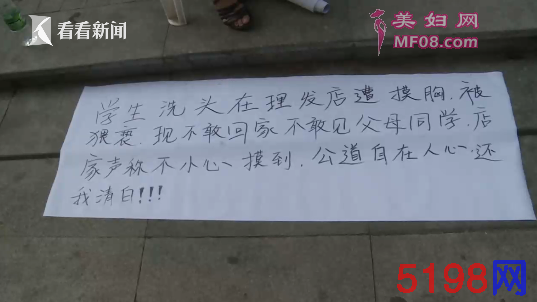 看看新闻
美妇网
MF08.com
学生洗头在理发店遭摸胸.被
猥亵.现不敢回家不敢见父母同学.店
家声称不小心摸到.公道自在人心.还
我清白!!!
5198网